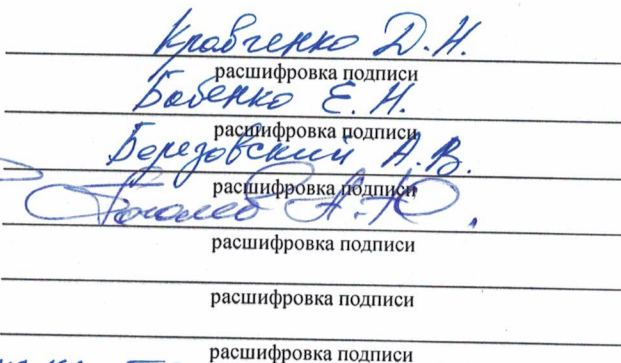 Кравченко Д.Н.
расшифровка подписи
Бабенко Е.Н.
расшифровка подписи
Березовский А.В.
расшифровка подписи
А.Ю.
расшифровка подписи
расшифровка подписи
расшифровка подписи